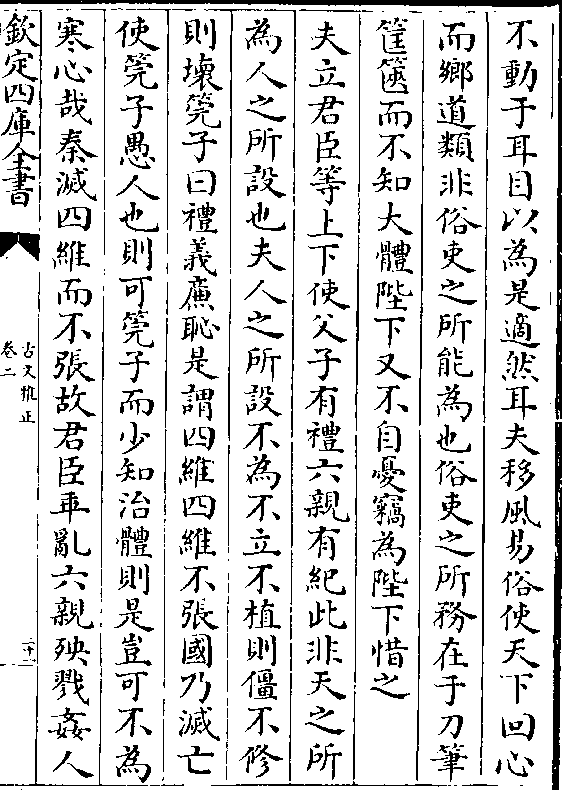 不動于耳目以為是適然耳夫移風易俗使天下回心
而鄉道類非俗吏之所能為也俗吏之所務在于刀筆
筐篋而不知大體陛下又不自憂竊為陛下惜之
夫立君臣等上下使父子有禮六親有紀此非天之所
為人之所設也夫人之所設不為不立不植則僵不修
則壞筦子曰禮義廉恥是謂四維四維不張國乃滅亡
使筦子愚人也則可筦子而少知治體則是豈可不為
寒心哉秦滅四維而不張故君臣乖亂六親殃戮姦人
欽定四庫全書
古文雅正
卷二